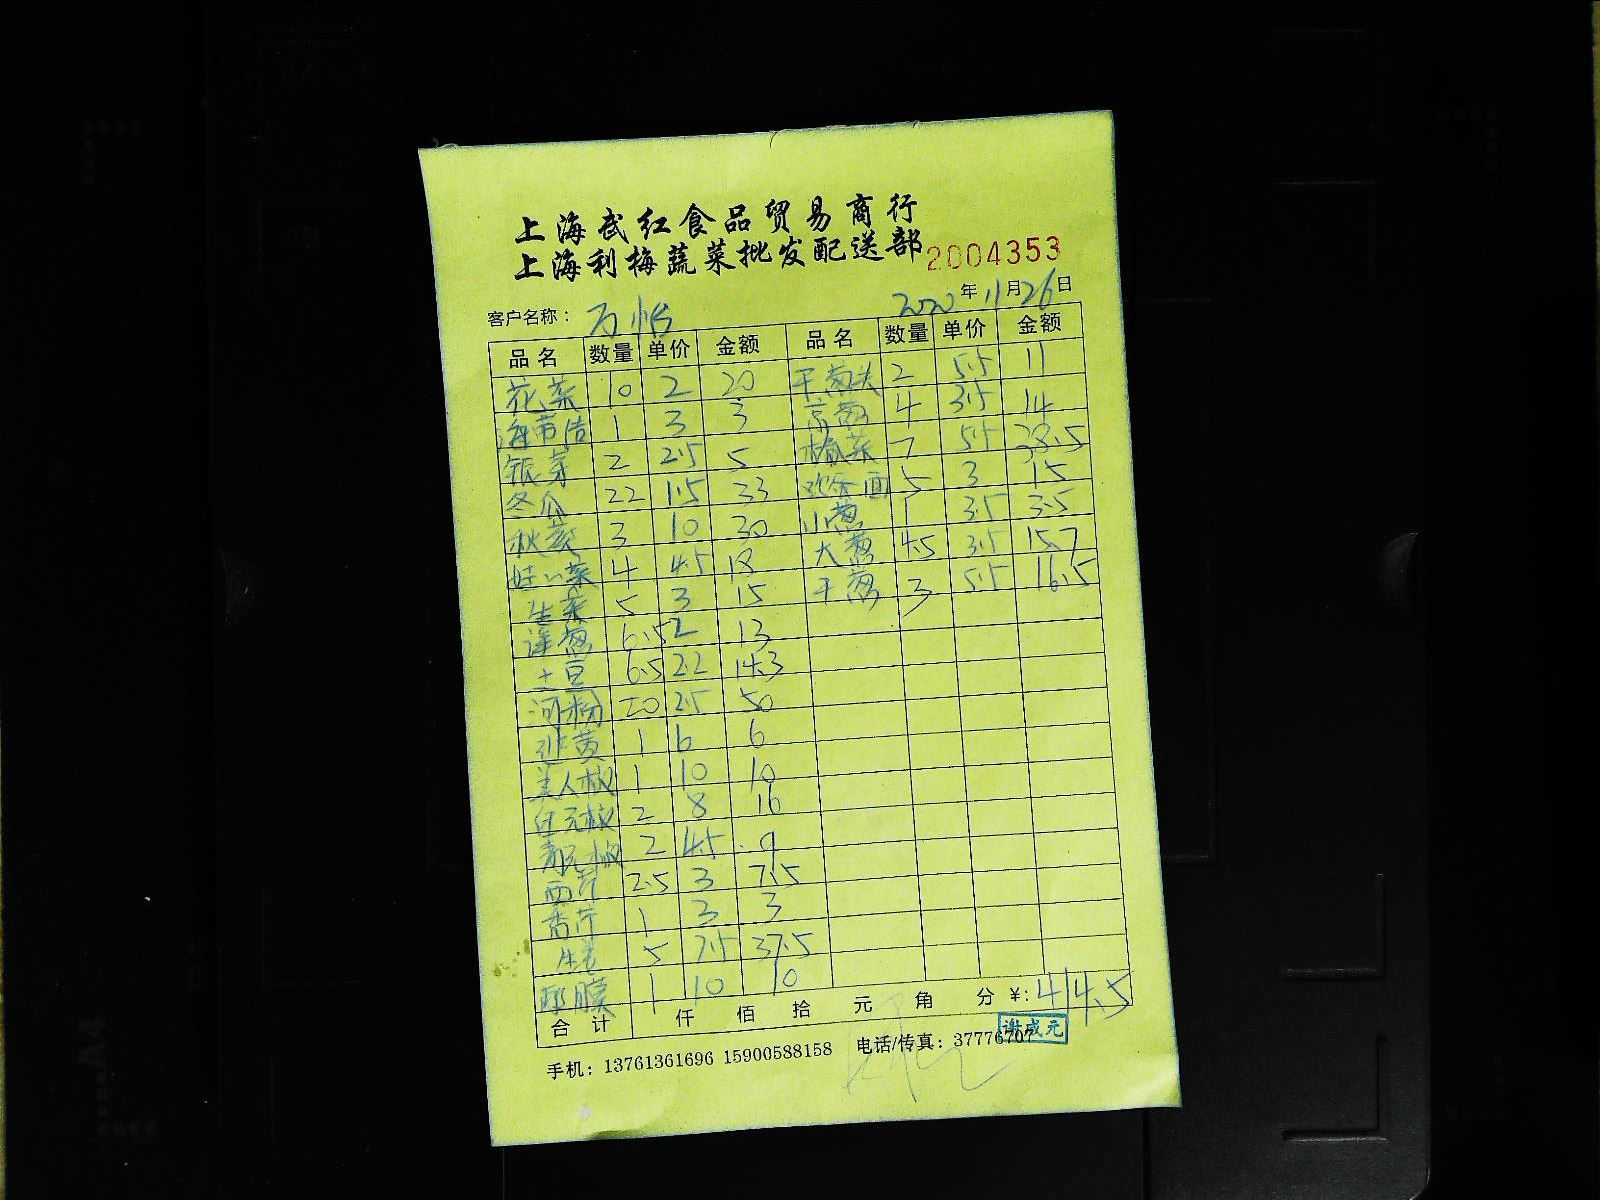 上海武红食品贸易商行
上海利梅蔬菜批发配送部 2004353
客户名称： 万怡 2020年11月26日
品名 数量 单价 金额 品名 数量 单价 金额
花菜 10 2 20 干葱头 2 5.5 11
海带结 1 3 3 京葱 4 3.5 14
银芽 2 2.5 5 榆菜 7 5.5 38.5
冬瓜 22 1.5 33 面 5 3 15
秋葵 3 10 30 小葱 1 3.5 3.5
娃娃菜 4 4.5 18 大葱 4.5 3.5 15.7
生菜 5 3 15 干葱 3 5.5 16.5
洋葱 6.5 2 13
土豆 6.5 2.2 14.3
河粉 20 2.5 50
韭黄 1 6 6
美人椒 1 10 10
红元椒 2 8 16
青元椒 2 4.5 9
西芹 2.5 3 7.5
香芹 1 3 3
生 5 7.5 37.5
膜 1 10 10
合计 仟 佰 拾 元 角 分 ¥: 414.5
手机：13761361696 15900588158 电话/传真：37776707
谢成元